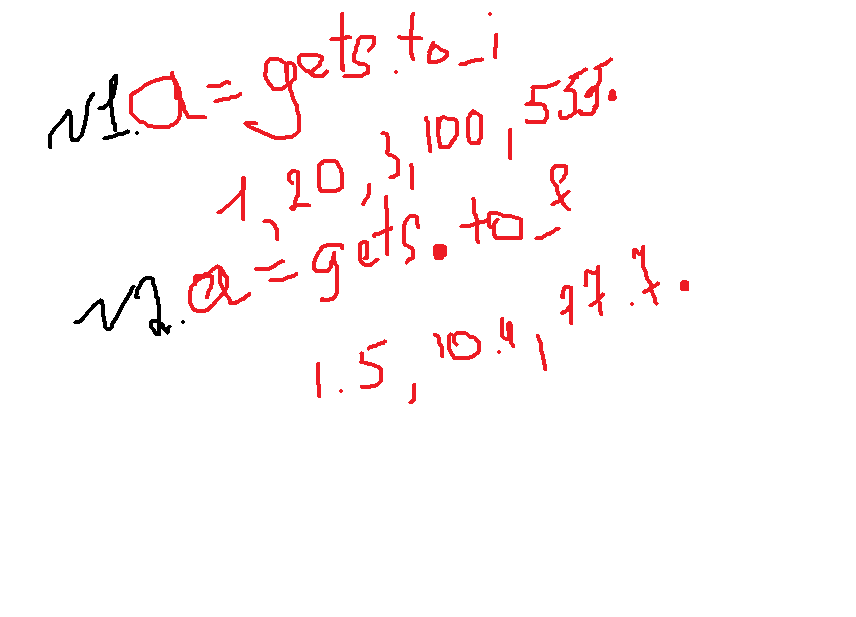 √1. a = gets.to_i
1, 20, 3, 100, 555.
√2. a = gets.to_f
1.5, 10.4, 77.7.